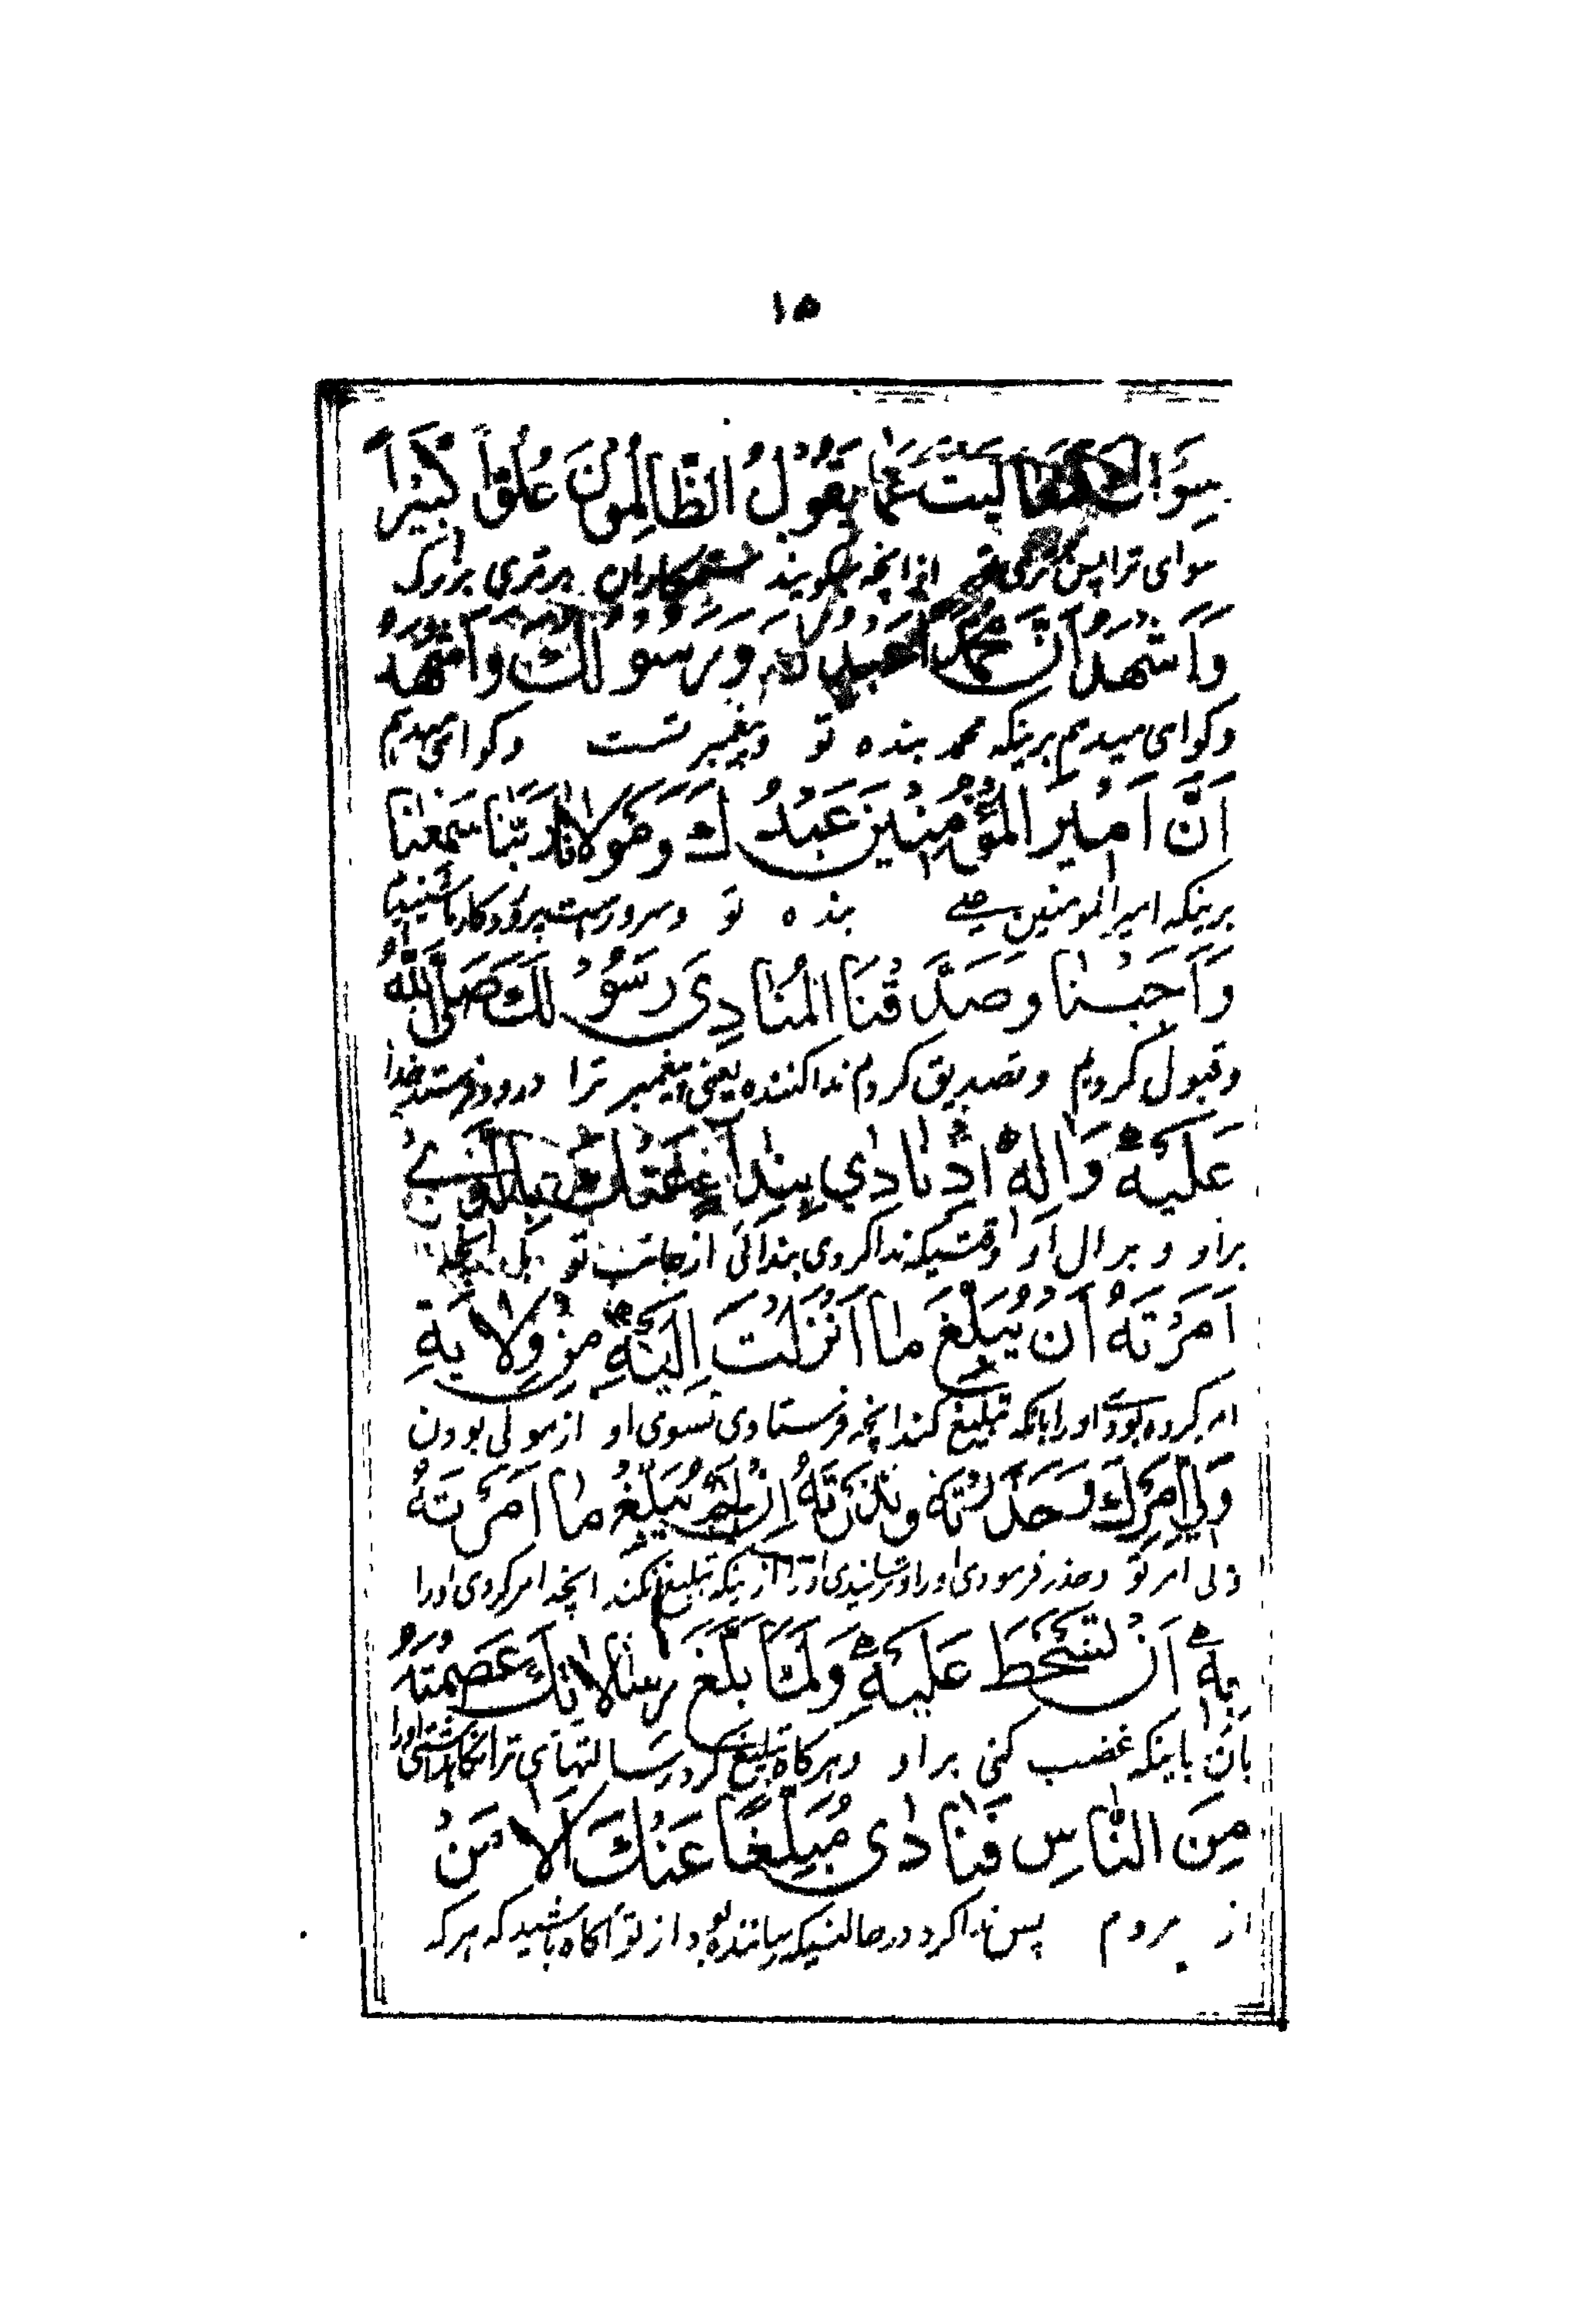 ۱۵
سِوَاكَ فَتَعَالَيْتَ عَمَّا يَقُوْلُ الظَّالِمُوْنَ عُلُوًّا كَبِيْرًا
سوای ترا پس برتری تو از انچه میگویند ستمکاران برتری بزرگ
وَاَشْهَدُ اَنَّ مُحَمَّدًا عَبْدُكَ وَرَسُوْلُكَ وَاَشْهَدُ
وکواهی میدهم برینکه محمد بنده تو وپیغمبر تست وکواهی میدهم
اَنَّ اَمِيْرَ الْمُؤْمِنِيْنَ عَبْدُكَ وَمَوْلَانَا رَبَّنَا سَمِعْنَا
برینکه امیر المومنین علی بنده تو وسرورماست پروردکارما شنیدیم
وَاَجَبْنَا وَصَدَّقْنَا الْمُنَادِىَ رَسُوْلَكَ صَلَّى اللهُ
وقبول کردیم وتصدیق کردم نداکننده یعنی پیغمبر ترا درود فرستد خدا
عَلَيْهِ وَاٰلِهِ اِذْ نَادٰى بِنِدَاءٍ عَنْكَ بِالَّذِيْ
براو و برال او وقتیکه نداکردی بندائی از جانب تو
اَمَرْتَهُ اَنْ يُبَلِّغَ مَا اَنْزَلْتَ اِلَيْهِ مِنْ وِلَايَةِ
امر کرده بودی اورا بانکه تبلیغ کند انچه فرستادی بسوی او از مولی بودن
وَلِيِّ اَمْرِكَ وَحَذَّرْتَهُ وَاَنْذَرْتَهُ اِنْ لَمْ يُبَلِّغْ مَا اَمَرْتَهُ
ولی امر تو وحذر فرمودی اورا وترسانیدی اورا ازینکه تبلیغ نکند انچه امر کردی اورا
بِهِ اَنْ تَسْخَطَ عَلَيْهِ وَلَمَّا بَلَّغَ رِسَالَاتِكَ عَصَمْتَهُ
بان باینکه غضب کنی براو وهرکاه تبلیغ کرد رسالتهای ترا نکاه داشتی اورا
مِنَ النَّاسِ فَنَادٰى مُبَلِّغًا عَنْكَ اَلَا مَنْ
از مردم پس نداکرد درحالتیکه رساننده بود از تو آکاه باشید که هرکه